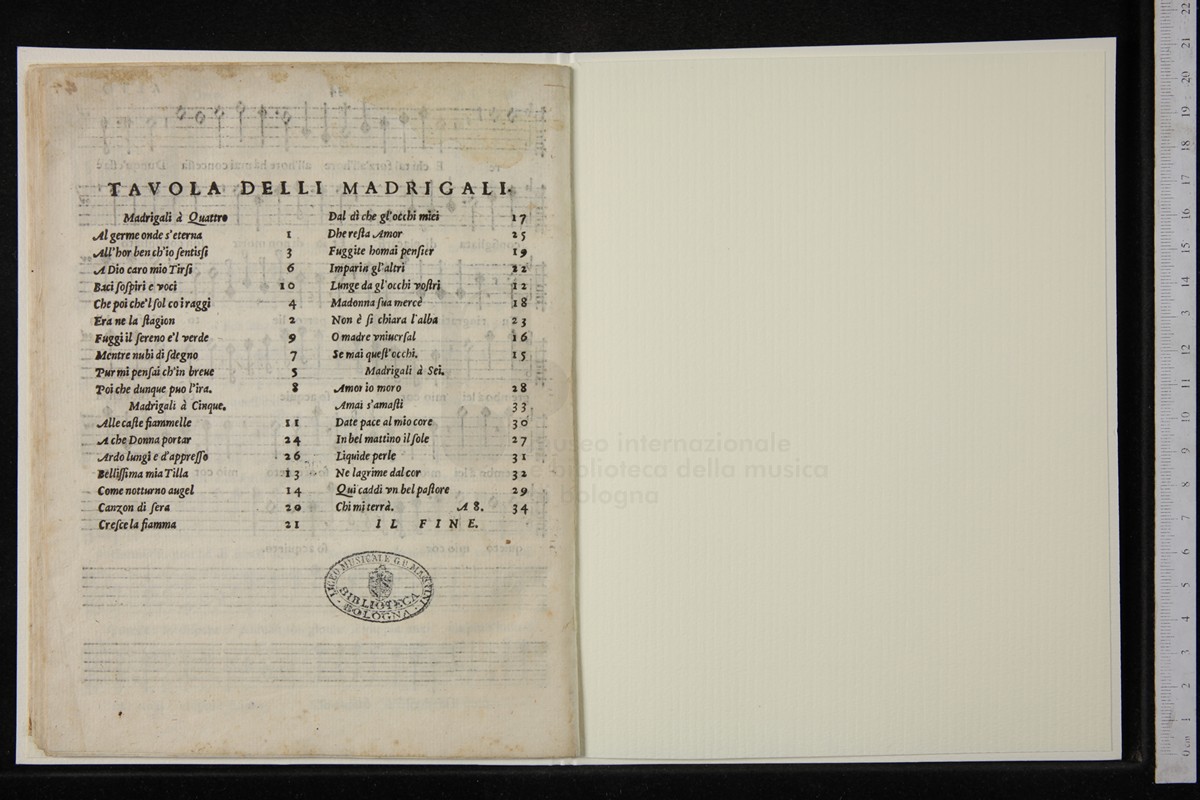 TAVOLA DELLI MADRIGALI.
Madrigali à Quattro
Al germe onde s'eterna 1
All'hor ben ch'io sentissi 3
A Dio caro mio Tirsi 6
Baci sospiri e voci 10
Che poi che'l sol co i raggi 4
Era ne la stagion 2
Fuggi il sereno e'l verde 9
Mentre nubi di sdegno 7
Pur mi pensai ch'in breue 5
Poi che dunque puo l'ira. 8
Madrigali à Cinque.
Alle caste fiammelle 11
A che Donna portar 24
Ardo lungi e d'appresso 26
Bellissima mia Tilla 13
Come notturno augel 14
Canzon di sera 20
Cresce la fiamma 21
Dal dì che gl'occhi miei 17
Dhe resta Amor 25
Fuggite homai pensier 19
Imparin gl'altri 22
Lunge da gl'occhi vostri 12
Madonna sua mercè 18
Non è si chiara l'alba 23
O madre vniuersal 16
Se mai quest'occhi. 15
Madrigali à Sei.
Amor io moro 28
Amai s'amasti 33
Date pace al mio core 30
In bel mattino il sole 27
Liquide perle 31
Ne lagrime dal cor 32
Qui caddi vn bel pastore 29
Chi mi terrà. A 8. 34
IL FINE.
LICEO MUSICALE G.B. MARTINI
BIBLIOTECA
BOLOGNA
museo internazionale
e biblioteca della musica
di bologna